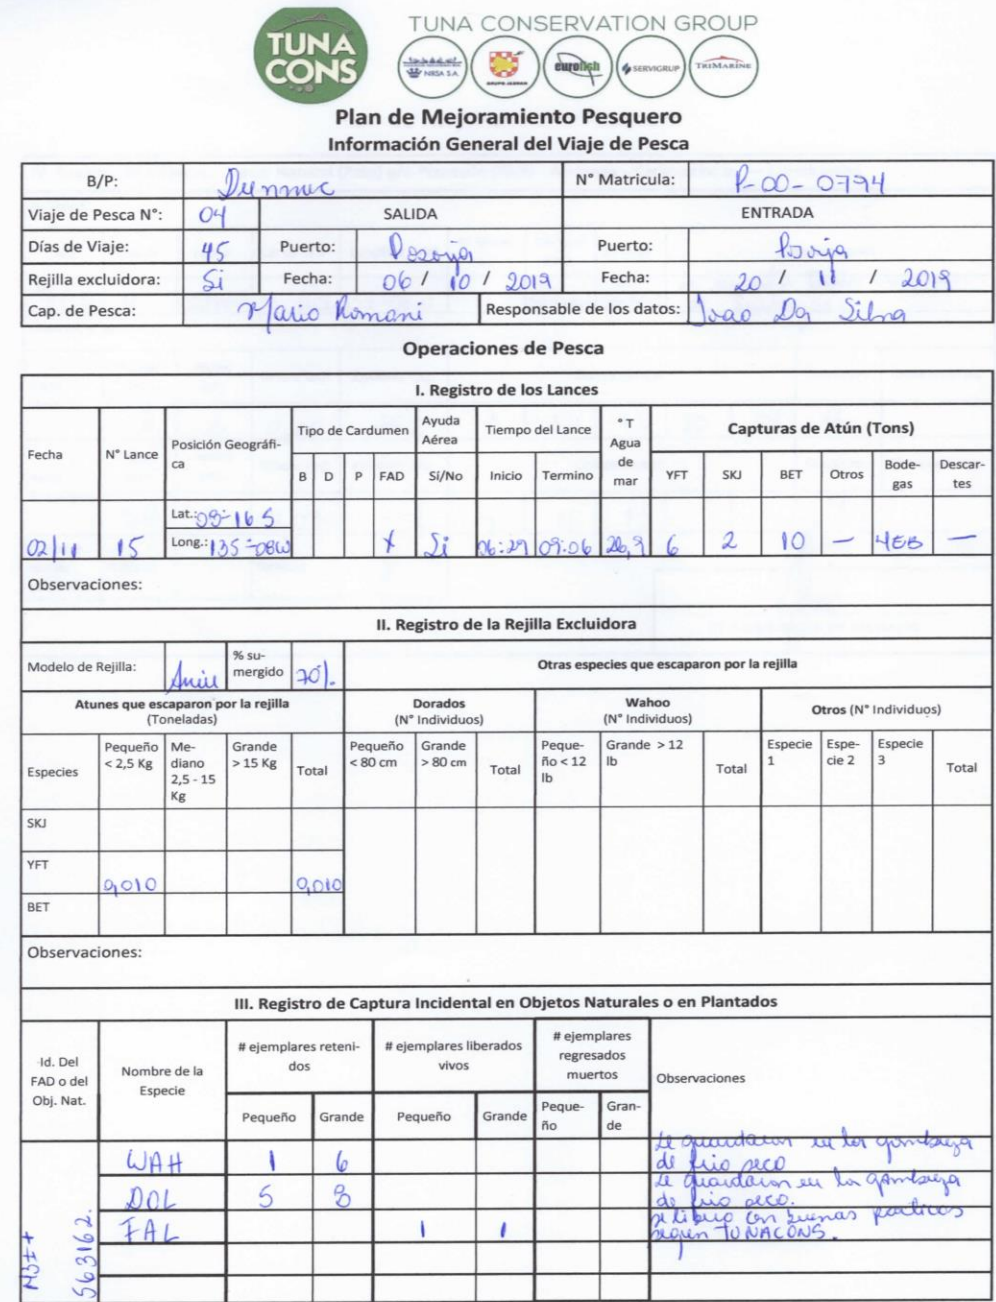 TUNA CONS
TUNA CONSERVATION GROUP
NIRSA S.A.
GRUPO JADRAN
eurofish
SERVIGRUP
TRIMARINE
Plan de Mejoramiento Pesquero
Información General del Viaje de Pesca
B/P: N° Matricula: P-00-0794
Viaje de Pesca N°: 04 SALIDA ENTRADA
Días de Viaje: 45 Puerto: Posorja Puerto:
Rejilla excluidora: Si Fecha: 06 / 10 / 2019 Fecha: 20 / 11 / 2019
Cap. de Pesca: Mario Romani Responsable de los datos: Joao Da Silva
Operaciones de Pesca
I. Registro de los Lances
Fecha N° Lance Posición Geográfi-ca Tipo de Cardumen Ayuda Aérea Tiempo del Lance ° T Agua de mar Capturas de Atún (Tons)
B D P FAD Sí/No Inicio Termino YFT SKJ BET Otros Bode-gas Descar-tes
Lat.: 09-16 S
02/11 15 Long.: 135-08W X Si 06:29 09:06 26,9 6 2 10 — 4EB —
Observaciones:
II. Registro de la Rejilla Excluidora
Modelo de Rejilla: % su-mergido 70% Otras especies que escaparon por la rejilla
Atunes que escaparon por la rejilla (Toneladas) Dorados (N° Individuos) Wahoo (N° Individuos) Otros (N° Individuos)
Especies Pequeño < 2,5 Kg Me-diano 2,5 - 15 Kg Grande > 15 Kg Total Pequeño < 80 cm Grande > 80 cm Total Peque-ño < 12 lb Grande > 12 lb Total Especie 1 Espe-cie 2 Especie 3 Total
SKJ
YFT 0,010 0,010
BET
Observaciones:
III. Registro de Captura Incidental en Objetos Naturales o en Plantados
Id. Del FAD o del Obj. Nat. Nombre de la Especie # ejemplares reteni-dos # ejemplares liberados vivos # ejemplares regresados muertos Observaciones
Pequeño Grande Pequeño Grande Peque-ño Gran-de
M3I+ 563162.
WAH 1 6 Se guardaron en la gambuza de frio seco
DOL 5 8 Se guardaron en la gambuza de frio seco.
FAL 1 1 se libero con buenas practicas segun TUNACONS.